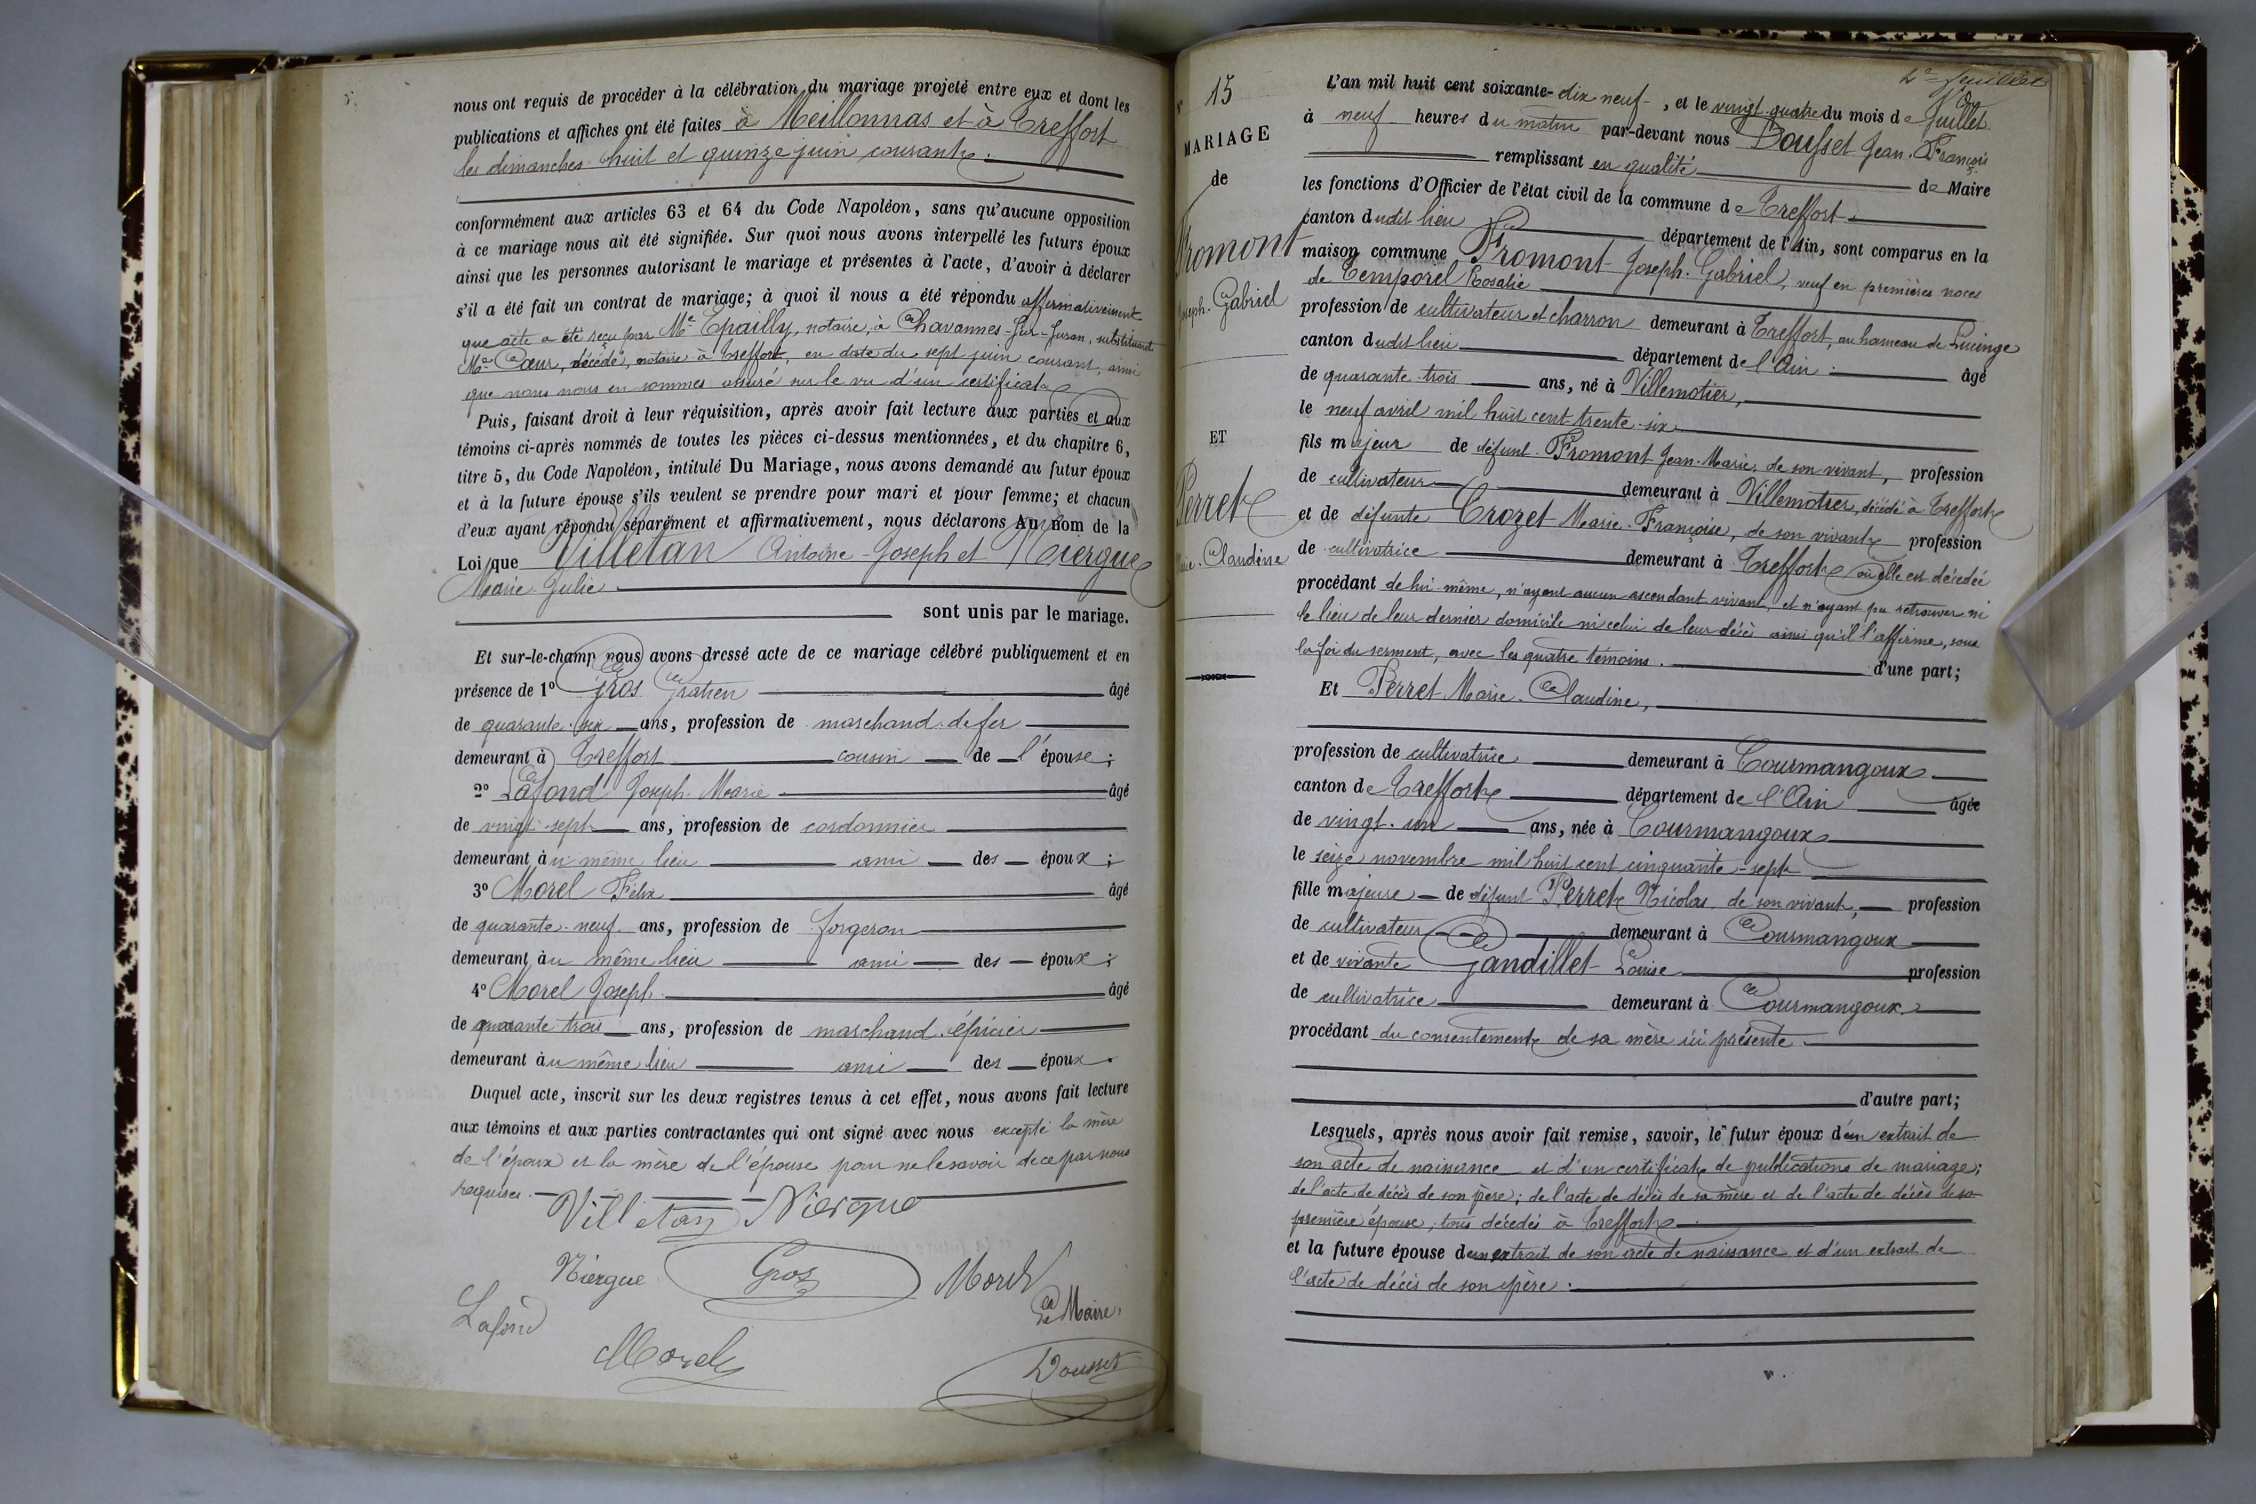 nous ont requis de procéder à la célébration du mariage projeté entre eux et dont les
publications et affiches ont été faites à Meillonnas et à Treffort
les dimanches huit et quinze juin courant.
conformément aux articles 63 et 64 du Code Napoléon, sans qu'aucune opposition
à ce mariage nous ait été signifiée. Sur quoi nous avons interpellé les futurs époux
ainsi que les personnes autorisant le mariage et présentes à l'acte, d'avoir à déclarer
s'il a été fait un contrat de mariage; à quoi il nous a été répondu affirmativement
que acte a été reçu par Me Epailly, notaire, à Chavannes-sur-Suran, substituant
Me Cœur, décédé, notaire à Treffort, en date du sept juin courant, ainsi
que nous nous en sommes assuré sur le vu d'un certificat
Puis, faisant droit à leur réquisition, après avoir fait lecture aux parties et aux
témoins ci-après nommés de toutes les pièces ci-dessus mentionnées, et du chapitre 6,
titre 5, du Code Napoléon, intitulé Du Mariage, nous avons demandé au futur époux
et à la future épouse s'ils veulent se prendre pour mari et pour femme; et chacun
d'eux ayant répondu séparément et affirmativement, nous déclarons Au nom de la
Loi que Villetan Antoine-Joseph et Niergue
Marie Julie
sont unis par le mariage.
Et sur-le-champ nous avons dressé acte de ce mariage célébré publiquement et en
présence de 1º Gros Gratien âgé
de quarante-six ans, profession de marchand de fer
demeurant à Treffort cousin de l'épouse;
2º Lafond Joseph-Marie âgé
de vingt-sept ans, profession de cordonnier
demeurant au même lieu ami des époux;
3º Morel Félix âgé
de quarante-neuf ans, profession de forgeron
demeurant au même lieu ami des époux;
4º Morel Joseph âgé
de quarante trois ans, profession de marchand épicier
demeurant au même lieu ami des époux.
Duquel acte, inscrit sur les deux registres tenus à cet effet, nous avons fait lecture
aux témoins et aux parties contractantes qui ont signé avec nous excepté la mère
de l'époux et la mère de l'épouse pour ne le savoir de ce par nous
requises.
Villetan Niergue
Niergue Gros Morel
Lafond Le Maire,
Morel Dousset
2e feuillet
Nº 15
MARIAGE
de
Fromont
Joseph-Gabriel
ET
Perret
Marie-Claudine
L'an mil huit cent soixante-dix neuf, et le vingt-quatre du mois de Juillet
à neuf heures du matin par-devant nous Dousset Jean-François
remplissant en qualité de Maire
les fonctions d'Officier de l'état civil de la commune de Treffort
canton dudit lieu département de l'Ain, sont comparus en la
maison commune Fromont Joseph-Gabriel, veuf en premières noces
de Temporel Rosalie
profession de cultivateur et charron demeurant à Treffort, au hameau de Lucinge
canton dudit lieu département de l'Ain âgé
de quarante-trois ans, né à Villemotier,
le neuf avril mil huit cent trente-six
fils majeur de défunt Fromont Jean-Marie, de son vivant, profession
de cultivateur demeurant à Villemotier, décédé à Treffort
et de défunte Crozet Marie-Françoise, de son vivant profession
de cultivatrice demeurant à Treffort où elle est décédée
procédant de lui-même, n'ayant aucun ascendant vivant, et n'ayant pu retrouver ni
le lieu de leur dernier domicile ni celui de leur décès ainsi qu'il l'affirme, sous
la foi du serment, avec les quatre témoins. d'une part;
Et Perret Marie-Claudine,
profession de cultivatrice demeurant à Courmangoux
canton de Treffort département de l'Ain âgée
de vingt-un ans, née à Courmangoux
le seize novembre mil huit cent cinquante-sept
fille majeure de défunt Perret Nicolas, de son vivant, profession
de cultivateur demeurant à Courmangoux
et de vivante Gandillet Louise profession
de cultivatrice demeurant à Courmangoux
procédant du consentement de sa mère ici présente
d'autre part;
Lesquels, après nous avoir fait remise, savoir, le futur époux d'un extrait de
son acte de naissance et d'un certificat de publications de mariage;
de l'acte de décès de son père; de l'acte de décès de sa mère et de l'acte de décès de sa
première épouse, tous décédés à Treffort
et la future épouse d'un extrait de son acte de naissance et d'un extrait de
l'acte de décès de son père.